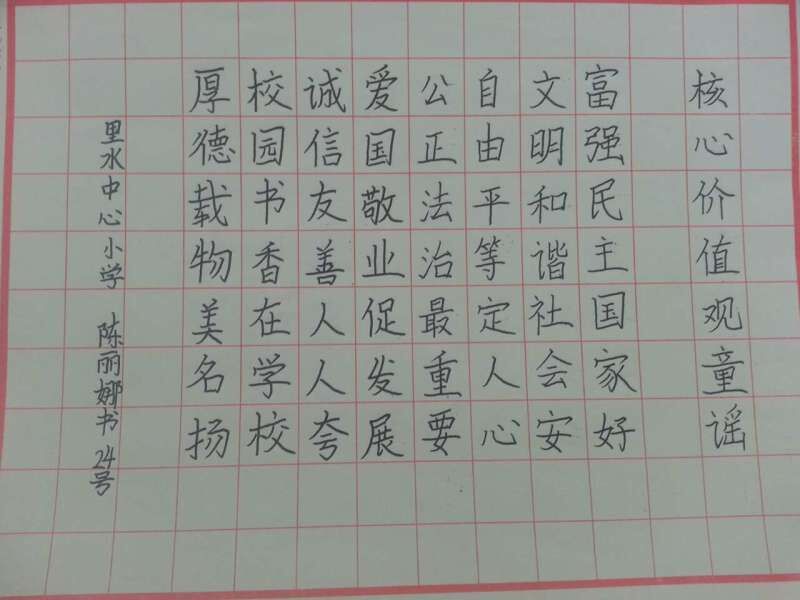 核心价值观童谣
富强民主国家好
文明和谐社会安
自由平等定人心
公正法治最重要
爱国敬业促发展
诚信友善人人夸
校园书香在学校
厚德载物美名扬
里水中心小学 陈丽娜书 24号